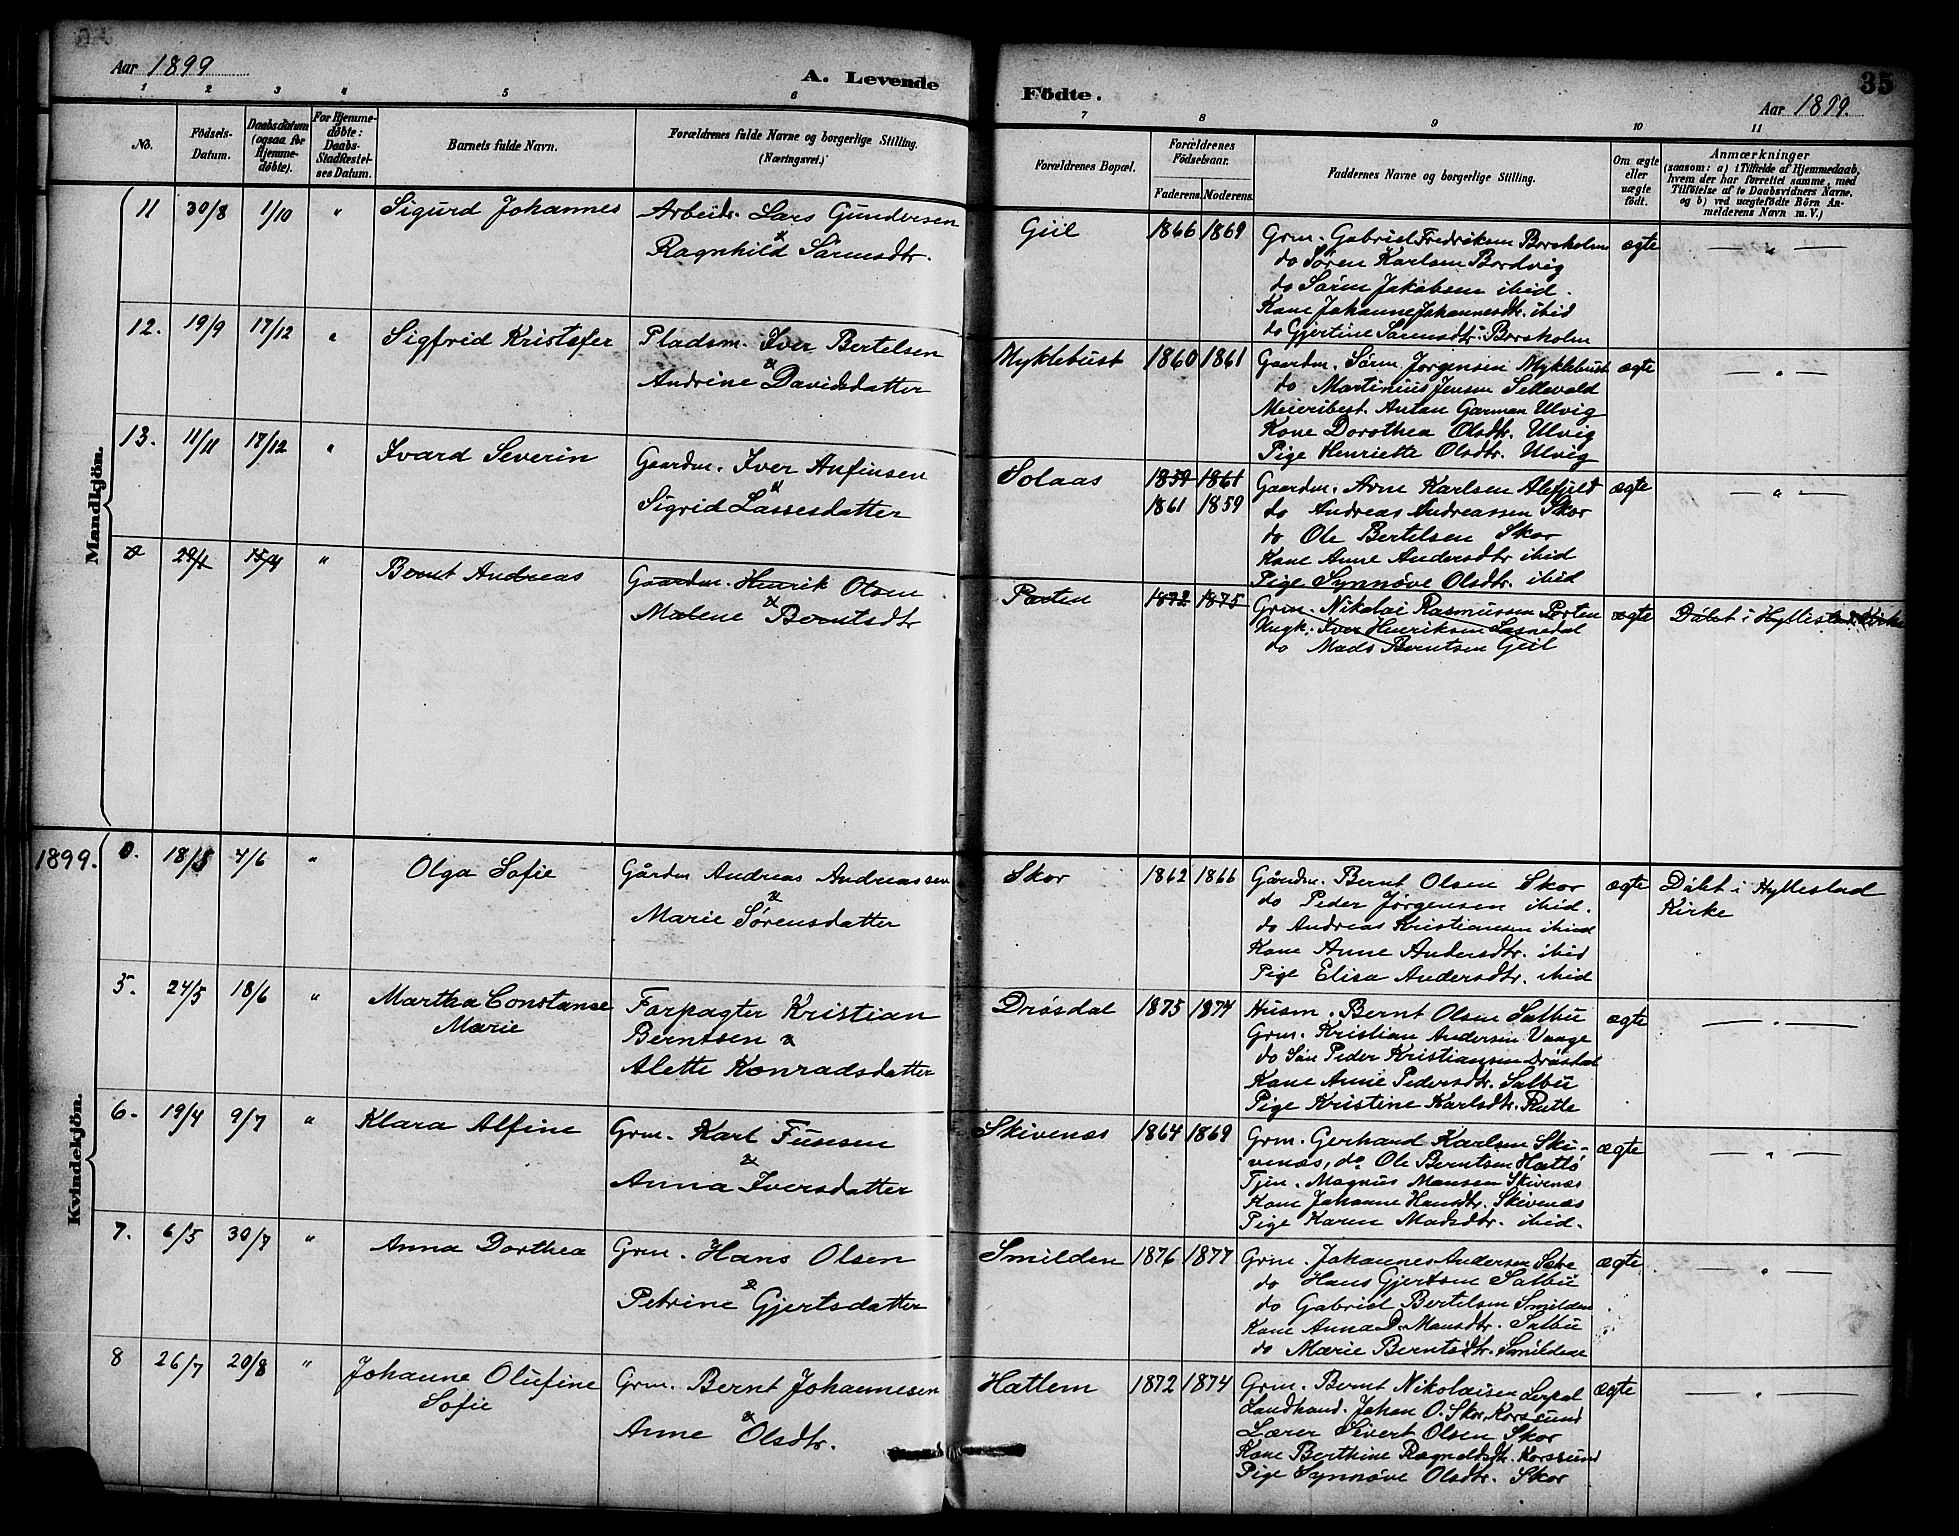 Aar 1899
A. Levende
Födte.
35
Aar 1899.
1 2 3 4 5 6 7 8 9 10 11
No.
Födsels-Datum.
Daabsdatum (ogsaa for Hjemme-døbte).
For Hjemme-døbte: Daabs-Stadfæstel-ses Datum.
Barnets fulde Navn.
Forældrenes fulde Navne og borgerlige Stilling. (Næringsvei.)
Forældrenes Bopæl.
Forældrenes Födselsaar.
Faderens. Moderens.
Faddernes Navne og borgerlige Stilling.
Om ægte eller uægte födt.
Anmærkninger
(saasom: a) i Tilfælde af Hjemmedaab,
hvem der har forrettet samme, med
Tilföielse af to Daabsvidners Navne,
og b) ved uægtefödte Börn An-
melderens Navn m. V.)
Mandkjön.
11 30/8 1/10 " Sigurd Johannes
Arbeidr. Lars Gundersen
&
Ragnhild Sörensdtr.
Giil 1866 1869
Grm. Gabriel Fredriksen Borsholm
do Søren Karlsen Bordvig
do Sören Jakobsen ibid.
Kone Johanne Johannesdtr. ibid
do Gjertine Sörensdtr. Borsholm
ægte — " —
12. 19/9 17/12 " Sigfrid Kristofer
Pladsm. Iver Bertelsen
&
Andrine Davidsdatter
Myklebust 1860 1861
Gaardm. Sören Jørgensen Myklebust
do Martinius Jensen Sellevold
Meieribest. Anton Garmen Ulvig
Kone Dorothea Olsdtr. Ulvig
Pige Henriette Olsdtr. Ulvig
ægte — " —
13. 11/11 17/12 " Ivard Severin
Gaardm. Iver Anfinsen
&
Sigrid Lassesdatter
Solaas 1859 1861
1861 1859
Gaardm. Arne Karlsen
do Andreas Andreassen Skor
do Ole Bertelsen Skor
Kone Anne Andersdtr ibid
Pige Synnøve Olsdtr. ibid
ægte — " —
0 15/4 " Bernt Andreas
Gaardm. Henrik Olsen
&
Malene Berntsdtr
Porten 1872 1875
Grm. Nikolai Rasmussen Porten
Ungk. Iver Henriksen
do Mads Berntsen Giil
ægte Döbt i Hyllestad Kirke
1899.
Kvindekjön.
0. 18/3 4/6 " Olga Sofie
Gårdm Andreas Andreassen
&
Marie Sørensdatter
Skor 1862 1866
Gårdm. Bernt Olsen Skor
do Peder Jørgensen ibid.
do Andreas Kristiansen ibid
Kone Anne Andersdtr. ibid
Pige Elisa Andersdtr. ibid
ægte Döbt i Hyllestad
Kirke
5. 24/5 18/6 " Martha Constanse
Marie
Forpagter Kristian
Berntsen &
Alette Konradsdatter
Drösdal 1875 1874
Husm. Bernt Olsen Salbu
Grm. Kristian Andersen Vaage
do Sön Peder Kristiansen Drösdal
Kone Anne Pedersdtr. Salbu
Pige Kristine Karlsdtr. Rutle
ægte — " —
6. 19/4 9/7 " Klara Alfine
Grm. Karl Fusesen
&
Anna Iversdatter
Skivenæs 1864 1869
Grm. Gerhard Karlsen Ski-
venæs, do Ole Berntsen Hattö
Tjen. Magnus Monsen Skivenæs
Kone Johanne Hansdtr. Skivenæs
Pige Karen Madsdtr. ibid.
ægte — " —
7. 6/5 30/7 " Anna Dorthea
Grm. Hans Olsen
&
Petrine Gjertsdatter
Smilden 1876 1877
Grm. Johannes Andersen Sæbe
do Hans Gjertsen Salbu
do Gabriel Bertelsen Smilden
Kone Anna P. Monsdtr. Salbu
do Marie Berntsdtr. Smilden
ægte — " —
8 26/7 20/8 " Johanne Olufine
Sofie
Grm. Bernt Johannesen
&
Anne Olsdtr.
Hatlem 1872 1874
Grm. Bernt Nikolaisen Leryal
Landhand. Johan O. Skor, Korssund
Lærer Sivert Olsen Skor
Kone Berthine Ragnaldsdtr. Korssund
Pige Synnøve Olsdtr. Skor
ægte — " —